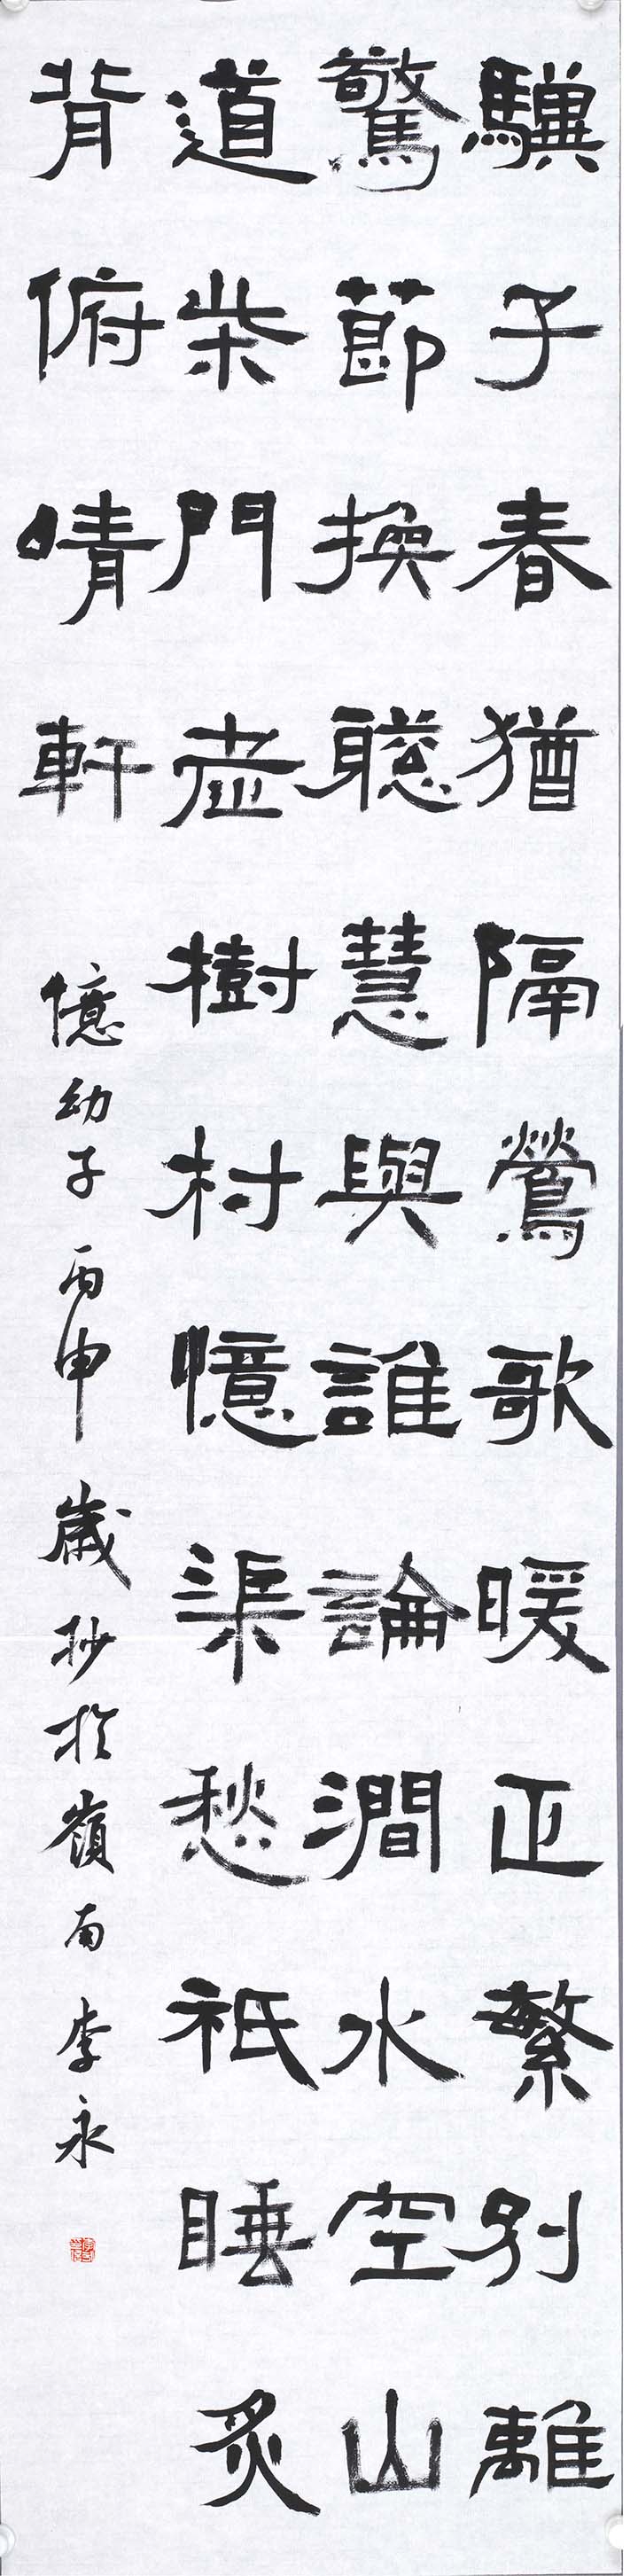 驥子春猶隔鶯歌暖正繁別離
驚節換聰慧與誰論澗水空山
道柴門老樹村憶渠愁祗睡炙
背俯晴軒
憶幼子丙申歲抄於嶺南李永